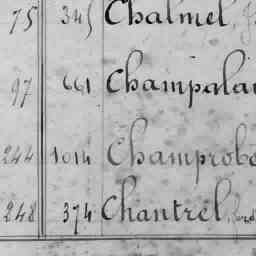 75 345 Chalmel
97 661 Champalai
244 1014 Champrobe
248 374 Chantrel